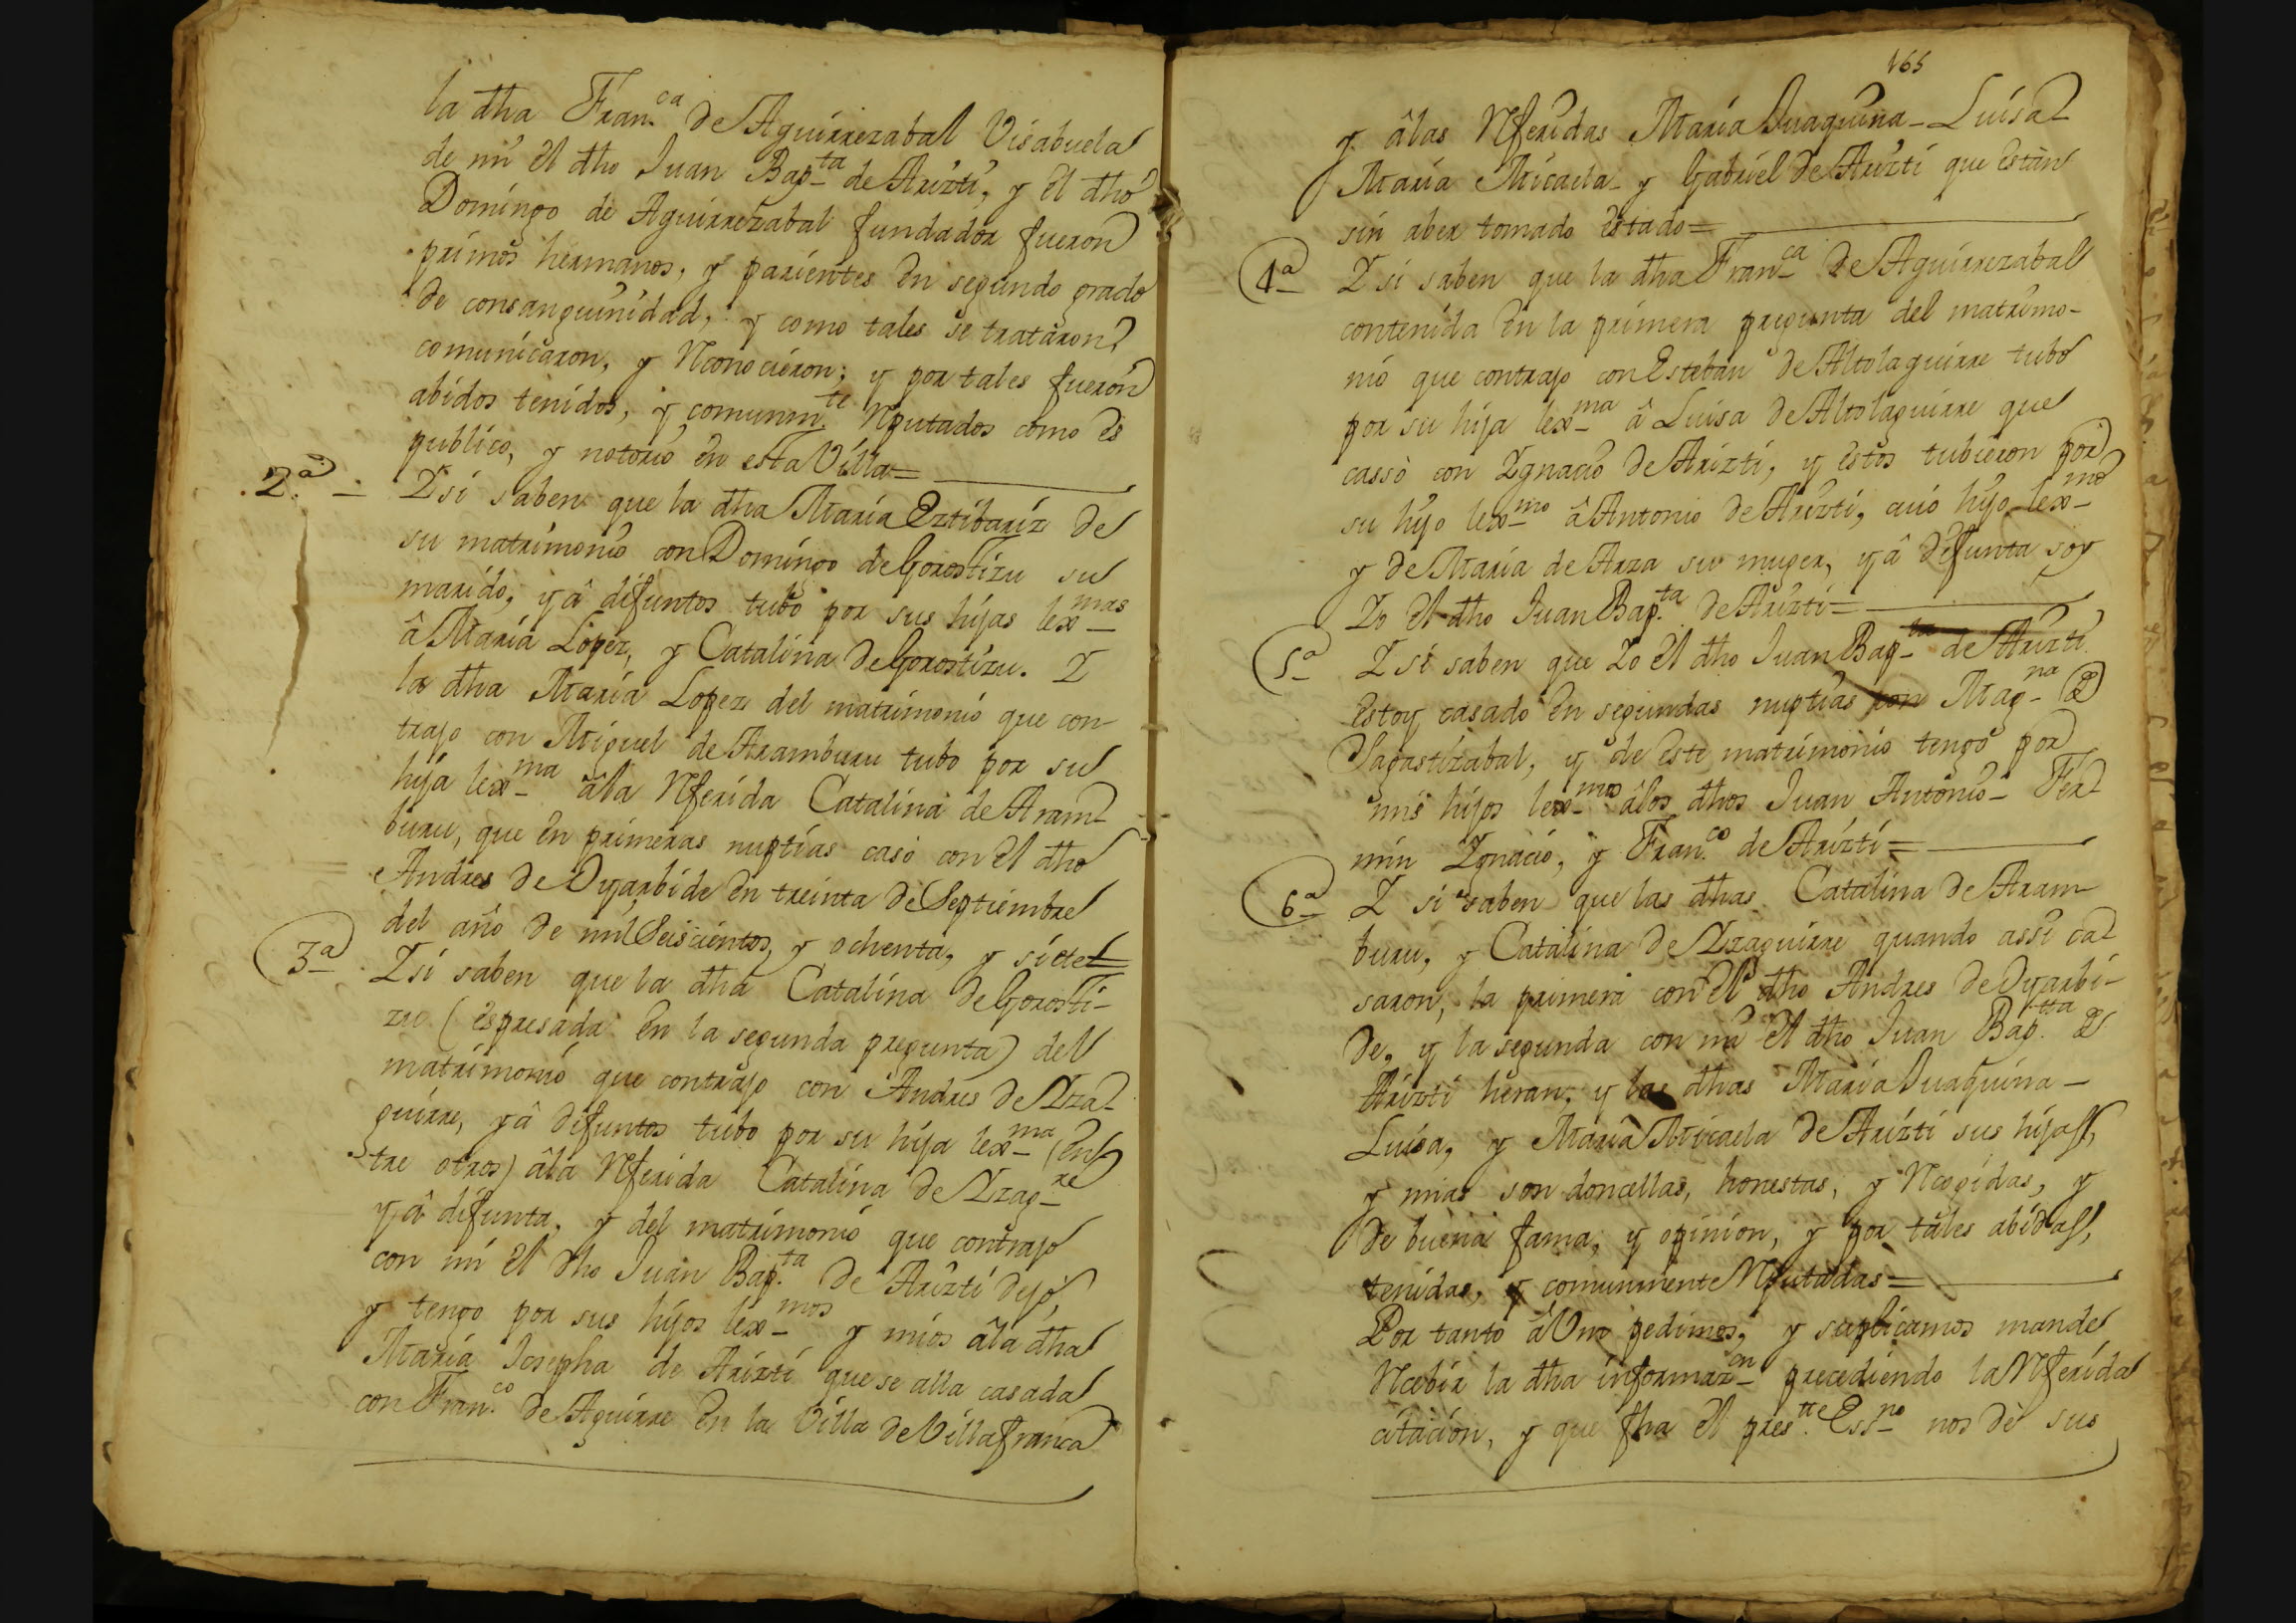 la dha Fran.ca de Aguirrezabal Visabuela
de mi el dho Juan Bap-ta de Arizti, y el dho
Domingo de Aguirrezabal fundador fueron
primos hermanos, y parientes en segundo grado
de consanguinidad, y como tales se trataron,
comunicaron, y Reconocieron; y por tales fueron
abidos tenidos, y comunm.te Reputados como es
publico, y notorio en esta Villa=
2.a - Y si saben que la dha Maria Eztibariz de
su matrimonio con Domingo de Gorostizu su
marido, yâ difuntos tubo por sus hijas lex-mas
â Maria Lopez, y Catalina de Gorostizu. Y
la dha Maria Lopez del matrimonio que con-
trajo con Miguel de Aramburu tubo por su
hija lex-ma âla Referida Catalina de Aram-
buru, que en primeras nuptias casò con el dho
Andres de Oyarbide en treinta de Septiembre
del año de mil Seiscientos, y ochenta, y siete=
3a- Y si saben que la dha Catalina de Gorosti-
zu (espresada en la segunda pregunta) del
matrimonio que contrajo con Andres de Yza-
guirre, yâ difuntos tubo por su hija lex-ma (en-
tre otros) âla Referida Catalina de Yzag-re
yâ difunta, y del matrimonio que contrajo
con mi el dho Juan Bap.ta de Arizti dejò,
y tengo por sus hijos lex-mos y mios âla dha
Maria Josepha de Arizti que se alla casada
con Fran.co de Aguirre en la Villa de Villafranca
165
y âlas Referidas Maria Juaquina- Luisa-
Maria Micaela- y Gabriel de Arizti que estàn
sin aber tomado estado=
4a- Y si saben que la dha Fran-ca de Aguirrezabal
contenida en la primera pregunta del matrimo-
nio que contrajo con Esteban de Altolaguirre tubo
por su hija lex-ma â Luisa de Altolaguirre que
cassò con Ygnacio de Arizti, y estos tubieron por
su hijo lex-mo â Antonio de Arizti, cuio hijo lex-mo
y de Maria de Arza su muger, yâ difunta soy
Yo el dho Juan Bap.ta de Arizti=
5a- Y si saben que Yo el dho Juan Bap-ta de Arizti
estoy casado en segundas nuptias con Mag-na de
Sagastizabal, y de este matrimonio tengo por
mis hijos lex-mos âlos dhos Juan Antonio- Fer-
min Ygnacio, y Fran.co de Arizti=
6a- Y si saben que las dhas Catalina de Aram-
buru, y Catalina de Yzaguirre quando assi ca-
saron, la primera con el dho Andres de Oyarbi-
de, y la segunda con mi el dho Juan Bap.tta de
Arizti heran, y las dhas Maria Juaquina-
Luisa, y Maria Micaela de Arizti sus hijas,
y mias son doncellas, honestas, y Recogidas, y
de buena fama, y opinion, y por tales abidas,
tenidas, y comunmente Reputadas=
Por tanto â Vm pedimos, y suplicamos mande
Recebir la dha informaz-on precediendo la Referida
citacion, y que fha el pres.tte Ess-no nos dè sus